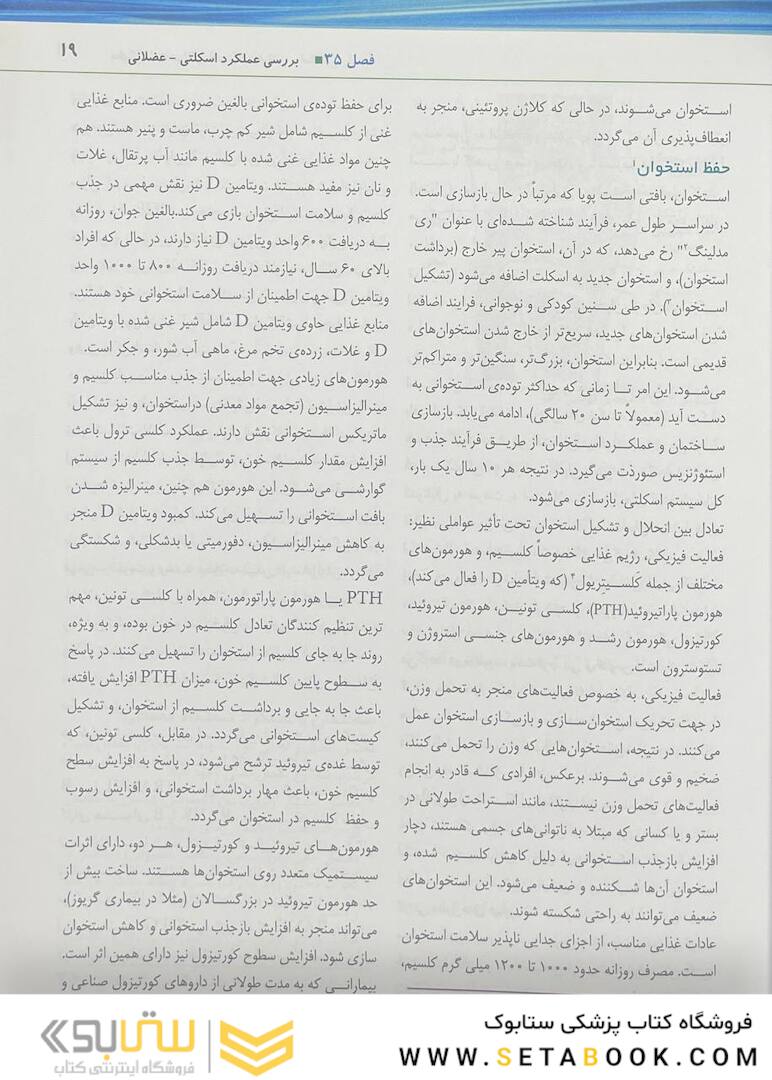 فصل ۳۵ ■ بررسی عملکرد اسکلتی - عضلانی
۱۹
استخوان می‌شوند، در حالی که کلاژن پروتئینی، منجر به
انعطاف‌پذیری آن می‌گردد.
حفظ استخوان۱
استخوان، بافتی است پویا که مرتباً در حال بازسازی است.
در سراسر طول عمر، فرآیند شناخته شده‌ای با عنوان "ری
مدلینگ۲" رخ می‌دهد، که در آن، استخوان پیر خارج (برداشت
استخوان)، و استخوان جدید به اسکلت اضافه می‌شود (تشکیل
استخوان۳). در طی سنین کودکی و نوجوانی، فرایند اضافه
شدن استخوان‌های جدید، سریع‌تر از خارج شدن استخوان‌های
قدیمی است. بنابراین استخوان، بزرگ‌تر، سنگین‌تر و متراکم‌تر
می‌شود. این امر تا زمانی که حداکثر توده‌ی استخوانی به
دست آید (معمولاً تا سن ۲۰ سالگی)، ادامه می‌یابد. بازسازی
ساختمان و عملکرد استخوان، از طریق فرآیند جذب و
استئوژنزیس صورذت می‌گیرد. در نتیجه هر ۱۰ سال یک بار،
کل سیستم اسکلتی، بازسازی می‌شود.
تعادل بین انحلال و تشکیل استخوان تحت تأثیر عواملی نظیر:
فعالیت فیزیکی، رژیم غذایی خصوصاً کلسیم، و هورمون‌های
مختلف از جمله کَلسیتِریول۴ (که ویتأمین D را فعال می‌کند)،
هورمون پاراتیروئید(PTH)، کلسی تونین، هورمون تیروئید،
کورتیزول، هورمون رشد و هورمون‌های جنسی استروژن و
تستوسترون است.
فعالیت فیزیکی، به خصوص فعالیت‌های منجر به تحمل وزن،
در جهت تحریک استخوان‌سازی و بازسازی استخوان عمل
می‌کنند. در نتیجه، استخوان‌هایی که وزن را تحمل می‌کنند،
ضخیم و قوی می‌شوند. برعکس، افرادی که قادر به انجام
فعالیت‌های تحمل وزن نیستند، مانند استراحت طولانی در
بستر و یا کسانی که مبتلا به ناتوانی‌های جسمی هستند، دچار
افزایش بازجذب استخوانی به دلیل کاهش کلسیم شده، و
استخوان آن‌ها شکننده و ضعیف می‌شود. این استخوان‌های
ضعیف می‌توانند به راحتی شکسته شوند.
عادات غذایی مناسب، از اجزای جدایی ناپذیر سلامت استخوان
است. مصرف روزانه حدود ۱۰۰۰ تا ۱۲۰۰ میلی گرم کلسیم،
برای حفظ توده‌ی استخوانی بالغین ضروری است. منابع غذایی
غنی از کلسیم شامل شیر کم چرب، ماست و پنیر هستند. هم
چنین مواد غذایی غنی شده با کلسیم مانند آب پرتقال، غلات
و نان نیز مفید هستند. ویتامین D نیز نقش مهمی در جذب
کلسیم و سلامت استخوان بازی می‌کند.بالغین جوان، روزانه
به دریافت ۶۰۰ واحد ویتامین D نیاز دارند، در حالی که افراد
بالای ۶۰ سال، نیازمند دریافت روزانه ۸۰۰ تا ۱۰۰۰ واحد
ویتامین D جهت اطمینان از سلامت استخوانی خود هستند.
منابع غذایی حاوی ویتامین D شامل شیر غنی شده با ویتامین
D و غلات، زرده‌ی تخم مرغ، ماهی آب شور، و جگر است.
هورمون‌های زیادی جهت اطمینان از جذب مناسب کلسیم و
مینرالیزاسیون (تجمع مواد معدنی) دراستخوان، و نیز تشکیل
ماتریکس استخوانی نقش دارند. عملکرد کلسی ترول باعث
افزایش مقدار کلسیم خون، توسط جذب کلسیم از سیستم
گوارشی می‌شود. این هورمون هم چنین، مینرالیزه شدن
بافت استخوانی را تسهیل می‌کند. کمبود ویتامین D منجر
به کاهش مینرالیزاسیون، دفورمیتی یا بدشکلی، و شکستگی
می‌گردد.
PTH یا هورمون پاراتورمون، همراه با کلسی تونین، مهم
ترین تنظیم کنندگان تعادل کلسیم در خون بوده، و به ویژه،
روند جا به جای کلسیم از استخوان را تسهیل می‌کنند. در پاسخ
به سطوح پایین کلسیم خون، میزان PTH افزایش یافته،
باعث جا به جایی و برداشت کلسیم از استخوان، و تشکیل
کیست‌های استخوانی می‌گردد. در مقابل، کلسی تونین، که
توسط غده‌ی تیروئید ترشح می‌شود، در پاسخ به افزایش سطح
کلسیم خون، باعث مهار برداشت استخوانی، و افزایش رسوب
و حفظ کلسیم در استخوان می‌گردد.
هورمون‌های تیروئید و کورتیزول، هر دو، دارای اثرات
سیستمیک متعدد روی استخوان‌ها هستند. ساخت بیش از
حد هورمون تیروئید در بزرگسالان (مثلا در بیماری گریوز)،
می‌تواند منجر به افزایش بازجذب استخوانی و کاهش استخوان
سازی شود. افزایش سطوح کورتیزول نیز دارای همین اثر است.
بیمارانی که به مدت طولانی از داروهای کورتیزول صناعی و
فروشگاه کتاب پزشکی ستابوک
WWW.SETABOOK.COM
ستابوک
فروشگاه اینترنتی کتاب